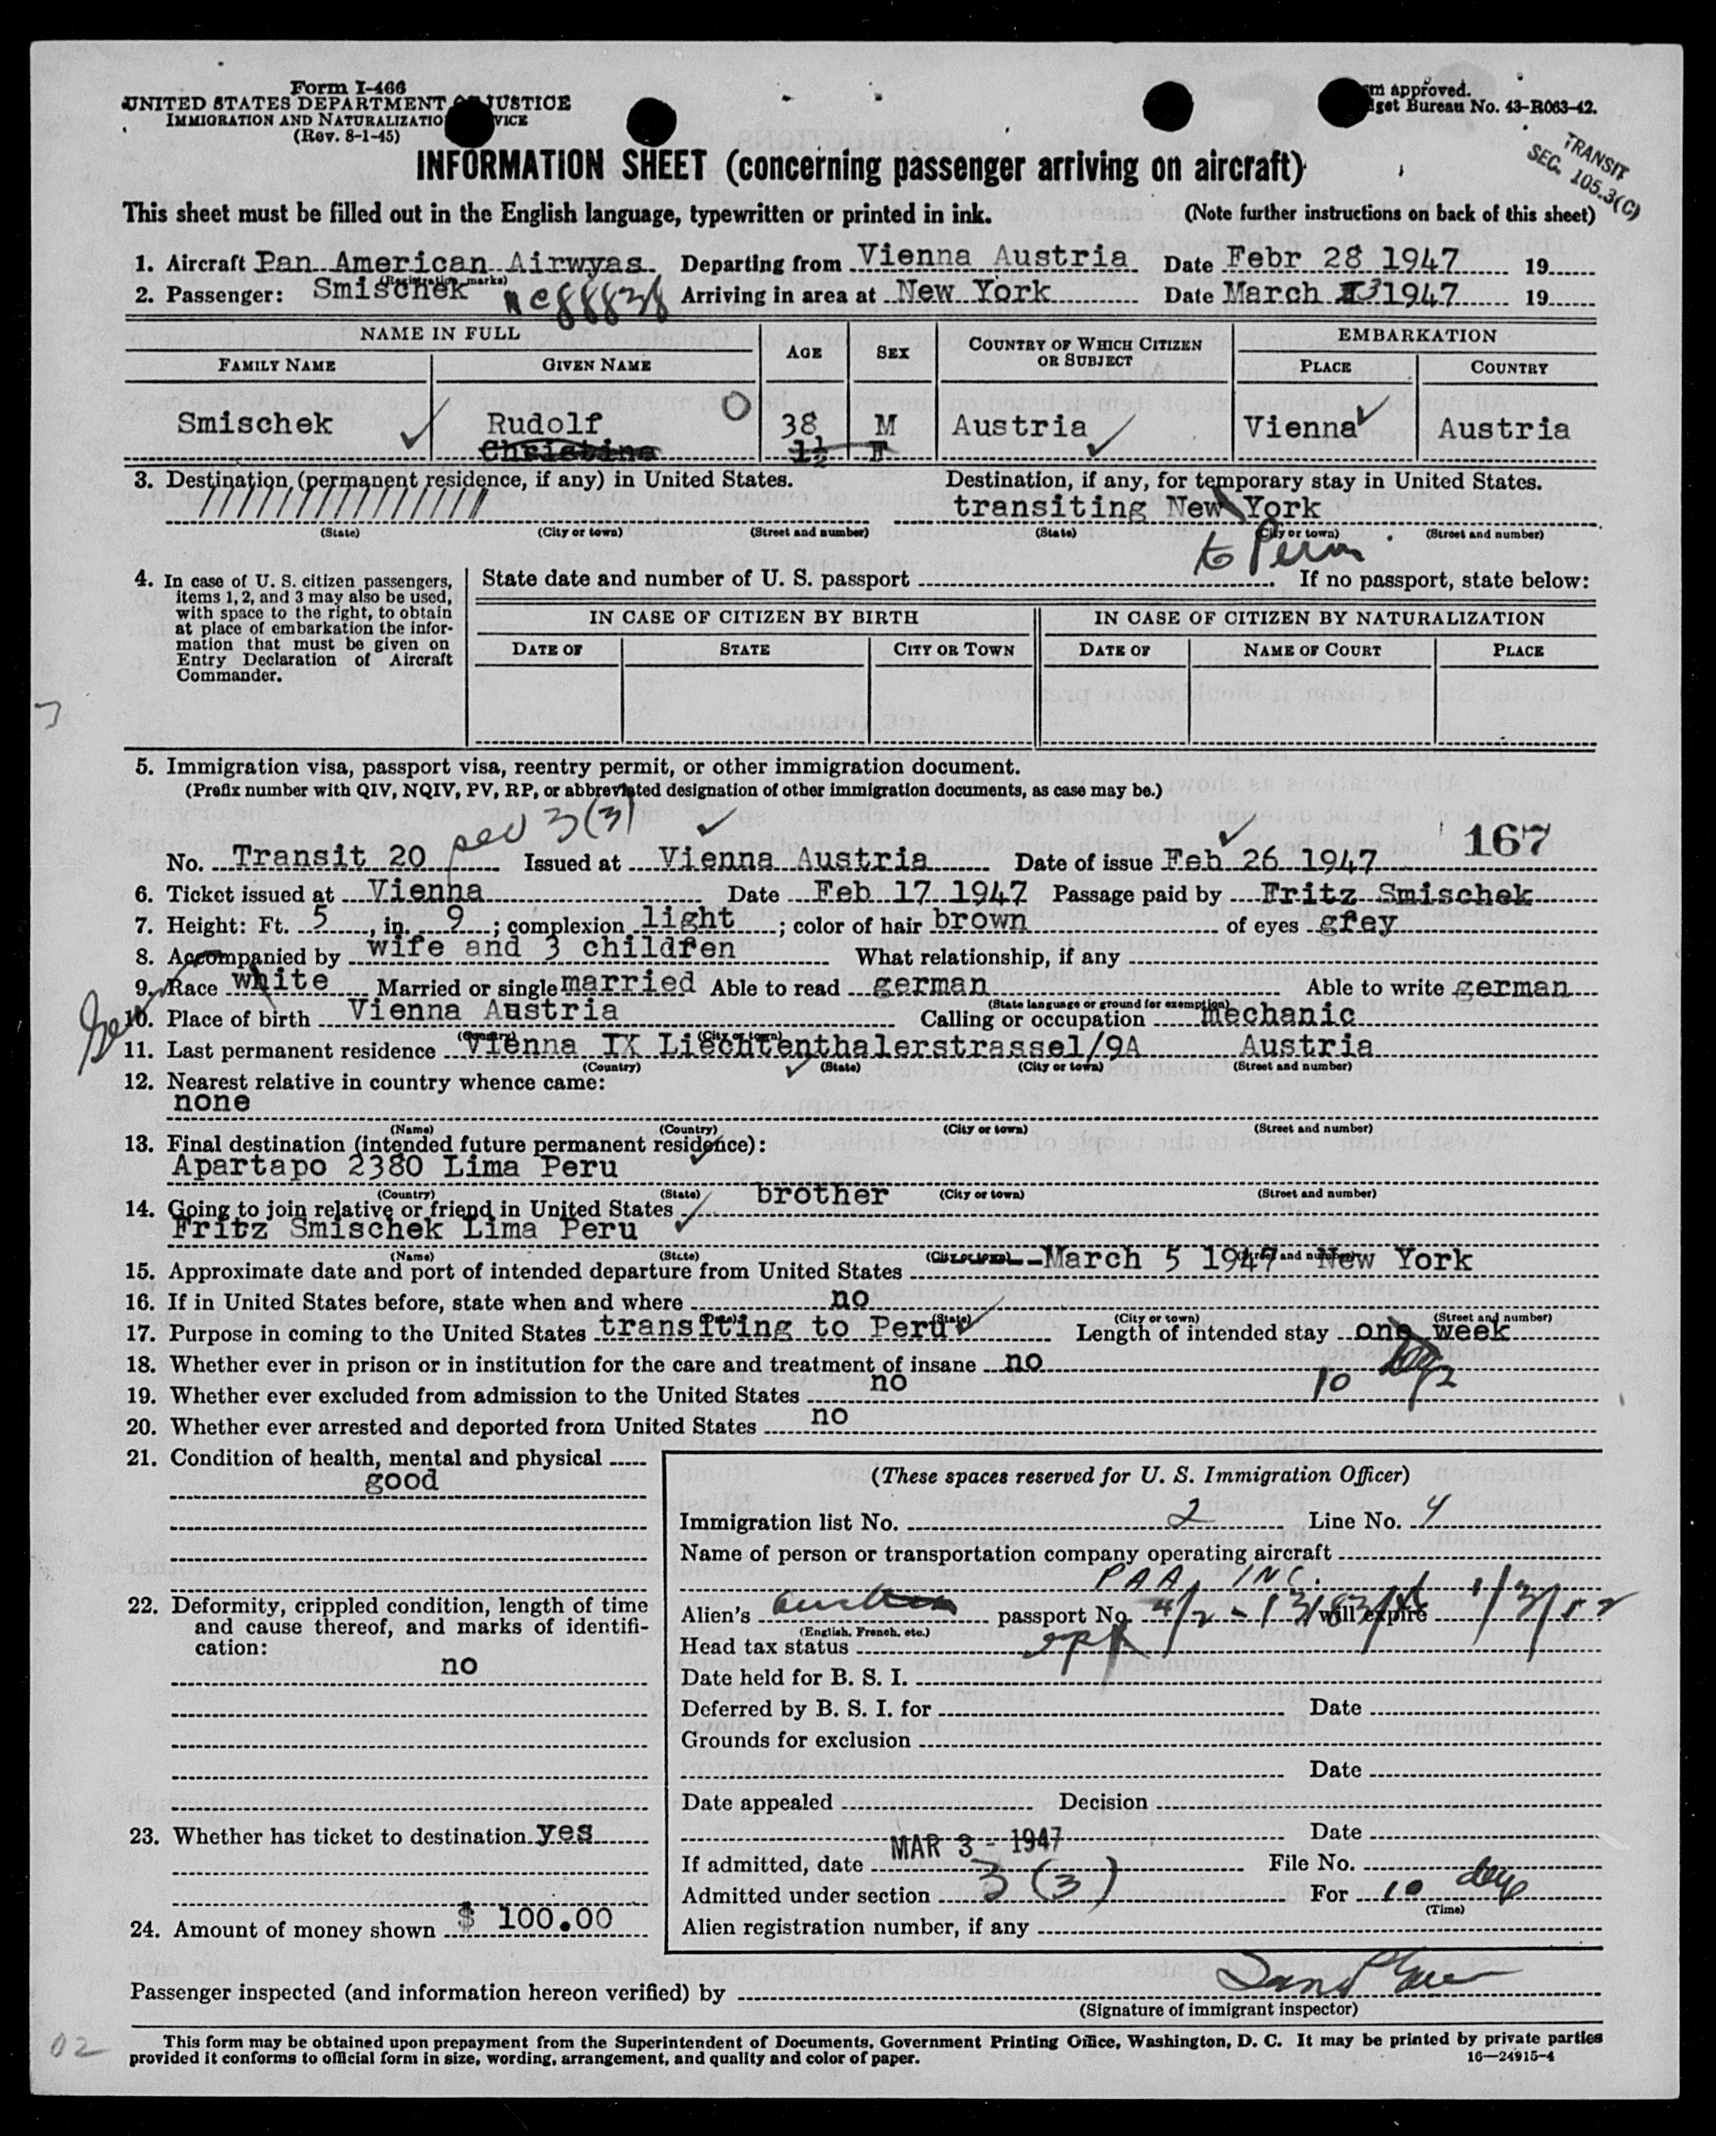 Form I-466
UNITED STATES DEPARTMENT OF JUSTICE
IMMIGRATION AND NATURALIZATION SERVICE
(Rev. 8-1-45)
Form approved.
Budget Bureau No. 43-R063-42.
TRANSIT
SEC. 105.3(C)
INFORMATION SHEET (concerning passenger arriving on aircraft)
This sheet must be filled out in the English language, typewritten or printed in ink. (Note further instructions on back of this sheet)
1. Aircraft Pan American Airwyas Departing from Vienna Austria Date Febr 28 1947 19
(Registration marks)
2. Passenger: Smischek Arriving in area at New York Date March 3 1947 19
NAME IN FULL AGE SEX COUNTRY OF WHICH CITIZEN OR SUBJECT EMBARKATION
FAMILY NAME GIVEN NAME PLACE COUNTRY
Smischek Rudolf 38 M Austria Vienna Austria
Christina 1½ F
3. Destination (permanent residence, if any) in United States. Destination, if any, for temporary stay in United States.
transiting New York
(State) (City or town) (Street and number) (State) (City or town) (Street and number)
to Peru
4. In case of U. S. citizen passengers, items 1, 2, and 3 may also be used, with space to the right, to obtain at place of embarkation the information that must be given on Entry Declaration of Aircraft Commander.
State date and number of U. S. passport If no passport, state below:
IN CASE OF CITIZEN BY BIRTH IN CASE OF CITIZEN BY NATURALIZATION
DATE OF STATE CITY OR TOWN DATE OF NAME OF COURT PLACE
5. Immigration visa, passport visa, reentry permit, or other immigration document.
(Prefix number with QIV, NQIV, PV, RP, or abbreviated designation of other immigration documents, as case may be.)
sec 3(3)
167
No. Transit 20 Issued at Vienna Austria Date of issue Feb 26 1947
6. Ticket issued at Vienna Date Feb 17 1947 Passage paid by Fritz Smischek
7. Height: Ft. 5, in. 9; complexion light; color of hair brown of eyes grey
8. Accompanied by wife and 3 children What relationship, if any
9. Race white Married or single married Able to read german Able to write german
(State language or ground for exemption)
10. Place of birth Vienna Austria Calling or occupation mechanic
(Country) (City or town)
11. Last permanent residence Vienna IX Liechtenthalerstrassel/9A Austria
(Country) (State) (City or town) (Street and number)
12. Nearest relative in country whence came:
none
(Name) (Country) (City or town) (Street and number)
13. Final destination (intended future permanent residence):
Apartapo 2380 Lima Peru
(Country) (State) (City or town) (Street and number)
14. Going to join relative or friend in United States brother
Fritz Smischek Lima Peru
(Name) (State) (City or town) (Street and number)
15. Approximate date and port of intended departure from United States March 5 1947 New York
16. If in United States before, state when and where no
(State) (City or town) (Street and number)
17. Purpose in coming to the United States transiting to Peru Length of intended stay one week
10 days
18. Whether ever in prison or in institution for the care and treatment of insane no
19. Whether ever excluded from admission to the United States no
20. Whether ever arrested and deported from United States no
21. Condition of health, mental and physical
good
22. Deformity, crippled condition, length of time and cause thereof, and marks of identification:
no
23. Whether has ticket to destination yes
24. Amount of money shown $ 100.00
(These spaces reserved for U. S. Immigration Officer)
Immigration list No. 2 Line No. 4
Name of person or transportation company operating aircraft
PAA INC.
Alien's passport No. will expire
(English, French, etc.)
Head tax status
Date held for B. S. I.
Deferred by B. S. I. for Date
Grounds for exclusion
Date
Date appealed Decision
Date
If admitted, date MAR 3 - 1947 File No.
Admitted under section 3 (3) For 10 days
(Time)
Alien registration number, if any
Passenger inspected (and information hereon verified) by
(Signature of immigrant inspector)
02
This form may be obtained upon prepayment from the Superintendent of Documents, Government Printing Office, Washington, D. C. It may be printed by private parties
provided it conforms to official form in size, wording, arrangement, and quality and color of paper. 16—24915-4